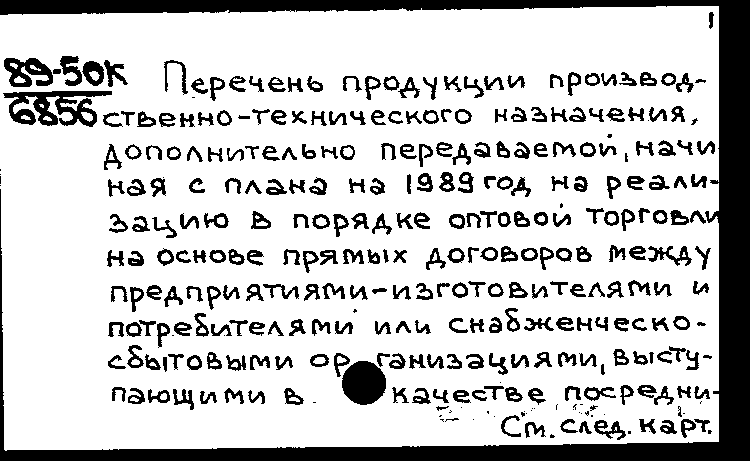 1
89-50К Перечень продукции производ-
6856 ственно-технического назначения,
дополнительно передаваемой, начи
ная с плана на 1989 год на реали-
зацию в порядке оптовой торговли
на основе прямых договоров между
предприятиями-изготовителями и
потребителями или снабженческо-
сбытовыми организациями, высту-
пающими в качестве посредни-
См. след. карт.